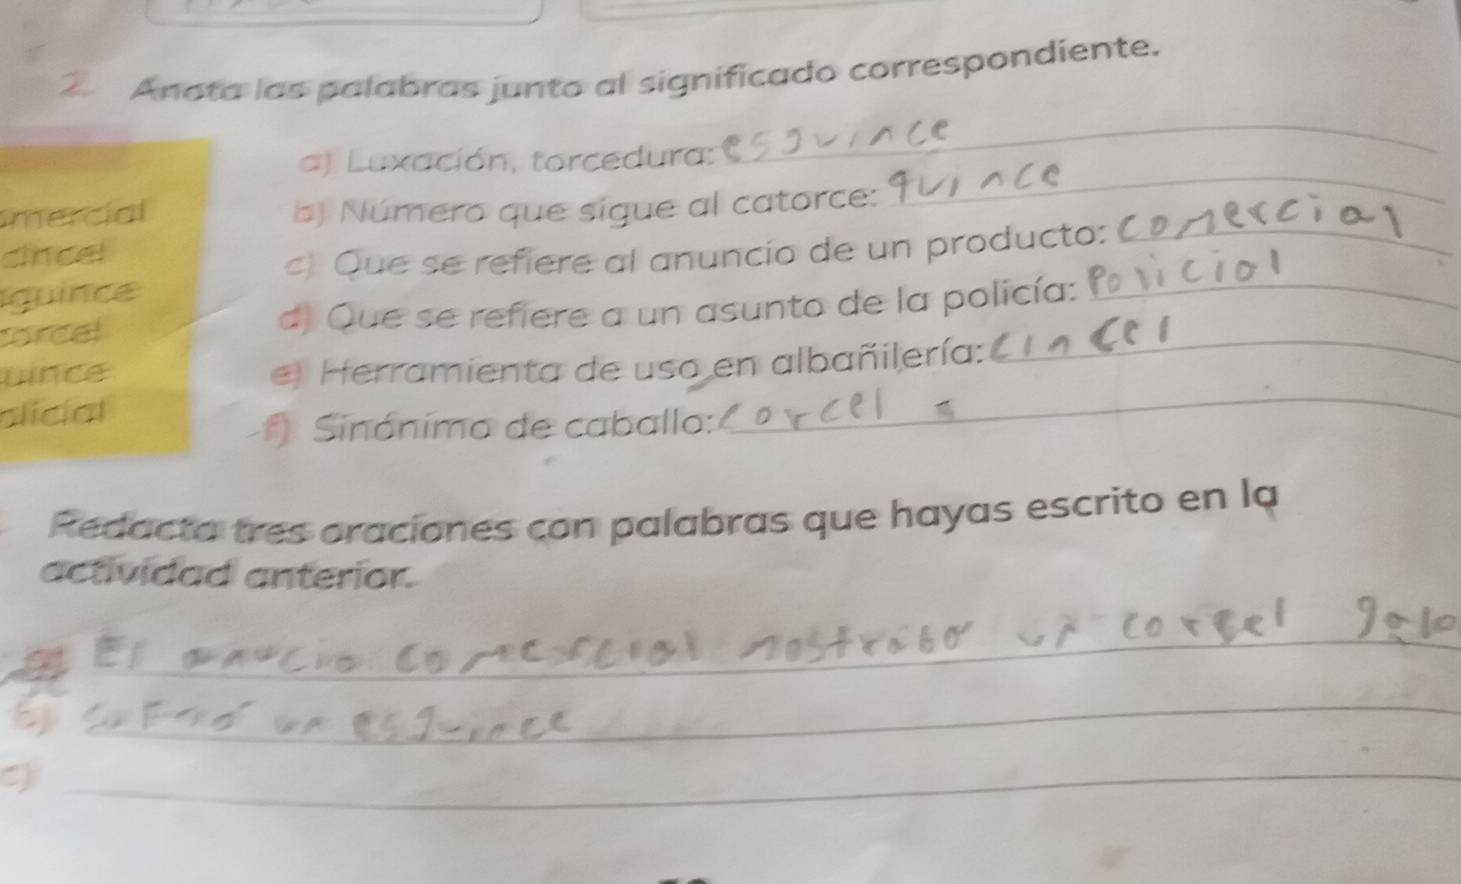 2. Anota las palabras junto al significado correspondiente.
a) Luxación, torcedura: esguince
b) Número que sigue al catorce: quince
c) Que se refiere al anuncio de un producto: comercial
d) Que se refiere a un asunto de la policía: Policial
e) Herramienta de uso en albañilería: cincel
f) Sinónimo de caballo: corcel
omercial
cincel
sguince
corcel
uince
olicial
Redacta tres oraciones con palabras que hayas escrito en la
actividad anterior.
El anucio comercial mostraba un corsel
b) un esguince
c)